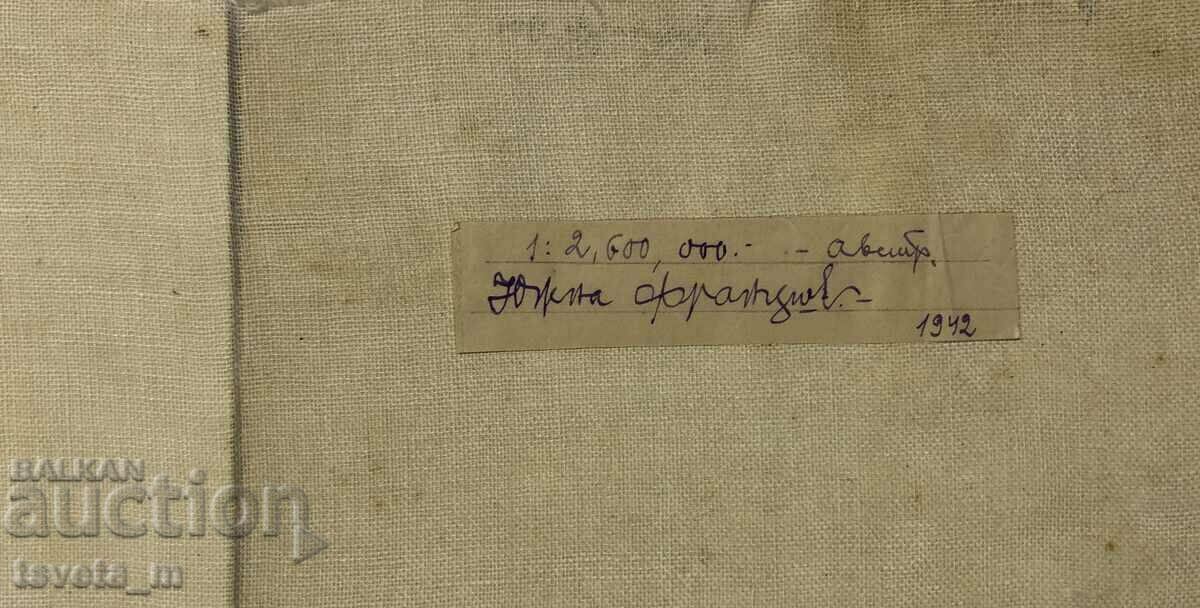 1: 2,600,000.- - австр.
Южна Франция.-
1942
BALKAN
auction
tsveta_m